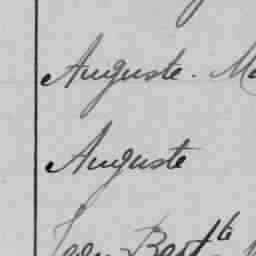 Auguste. Ma
Auguste
Jean Bapt^te